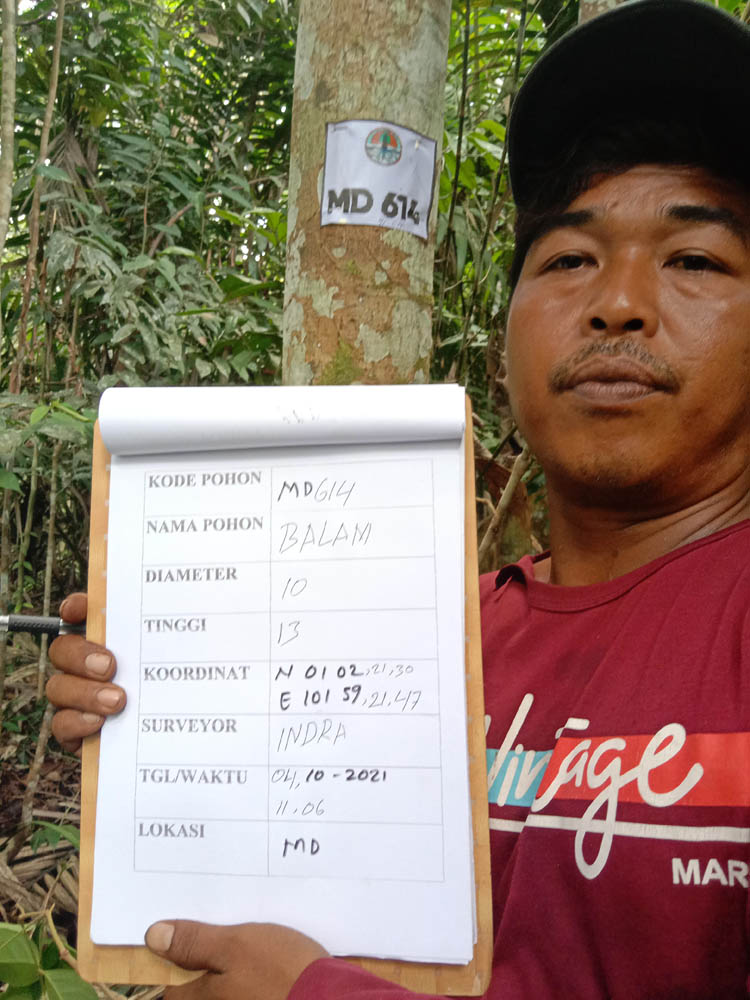 MD 614
KODE POHON MD614
NAMA POHON BALAM
DIAMETER 10
TINGGI 13
KOORDINAT N 01 02,21,30
E 101 59,21,47
SURVEYOR INDRA
TGL/WAKTU 04,10-2021
11.06
LOKASI MD
Vintage
MAR